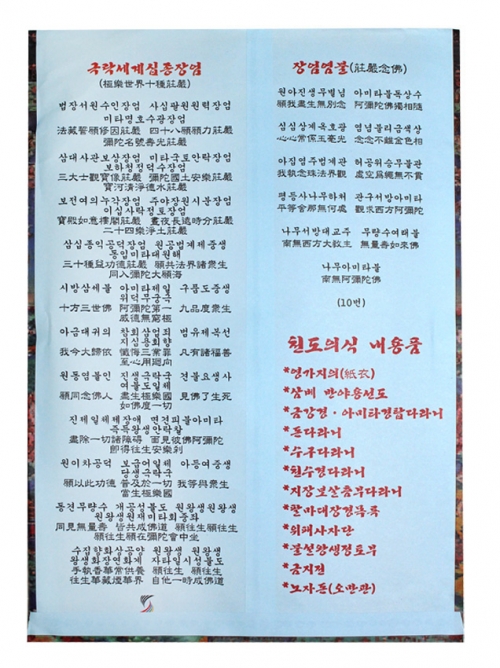 극락세계십종장엄
(極樂世界十種莊嚴)
법장서원수인장엄 사십팔원원력장엄
미타명호수광장엄
法藏誓願修因莊嚴 四十八願願力莊嚴
彌陀名號壽光莊嚴
삼대사관보상장엄 미타국토안락장엄
보하청정덕수장엄
三大士觀寶像莊嚴 彌陀國土安樂莊嚴
寶河淸淨德水莊嚴
보전여의누각장엄 주야장원시분장엄
이십사락정토장엄
寶殿如意樓閣莊嚴 晝夜長遠時分莊嚴
二十四樂淨土莊嚴
삼십종익공덕장엄 원공법계제중생
동입미타대원해
三十種益功德莊嚴 願共法界諸衆生
同入彌陀大願海
시방삼세불 아미타제일 구품도중생
위덕무궁극
十方三世佛 阿彌陀第一 九品度衆生
威德無窮極
아금대귀의 참회삼업죄 범유제복선
지심용회향
我今大歸依 懺悔三業罪 凡有諸福善
至心用廻向
원동염불인 진생극락국 견불요생사
여불도일체
願同念佛人 盡生極樂國 見佛了生死
如佛度一切
진제일체제장애 면견피불아미타
즉득왕생안락찰
盡除一切諸障碍 面見彼佛阿彌陀
卽得往生安樂刹
원이차공덕 보급어일체 아등여중생
당생극락국
願以此功德 普及於一切 我等與衆生
當生極樂國
동견무량수 개공성불도 원왕생원왕생
원왕생원재미타회중좌
同見無量壽 皆共成佛道 願往生願往生
願往生願在彌陀會中坐
수집향화상공양 원왕생 원왕생
왕생화장연화계 자타일시성불도
手執香華常供養 願往生 願往生
往生華藏蓮華界 自他一時成佛道
장엄염불(莊嚴念佛)
원아진생무별념 아미타불독상수
願我盡生無別念 阿彌陀佛獨相隨
심심상계옥호광 염념불리금색상
心心常係玉毫光 念念不離金色相
아집염주법계관 허공위승무불관
我執念珠法界觀 虛空爲繩無不貫
평등사나무하처 관구서방아미타
平等舍那無何處 觀求西方阿彌陀
나무서방대교주 무량수여래불
南無西方大敎主 無量壽如來佛
나무아미타불
南無阿彌陀佛
(10번)
천도의식 내용품
*영가지의(紙衣)
*삼베 반야용선도
*금강경 · 아미타경탑다라니
*돈다라니
*수구다라니
*천수경다라니
*지장보살츰부다라니
*팔만대장경목록
*위패사자단
*불설왕생정토부
*금지전
*노자돈(오만관)